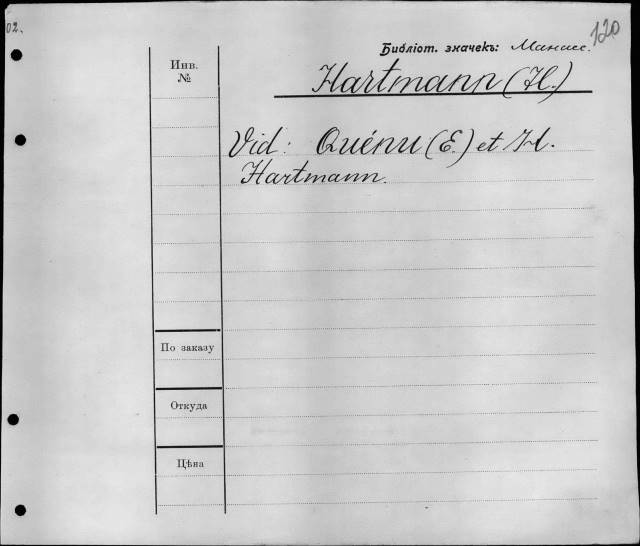 02.
120
Библіот. значекъ: Манасс.
Инв.
№
Hartmann (H.)
Vid: Quénu (E.) et H.
Hartmann.
По заказу
Откуда
Цѣна